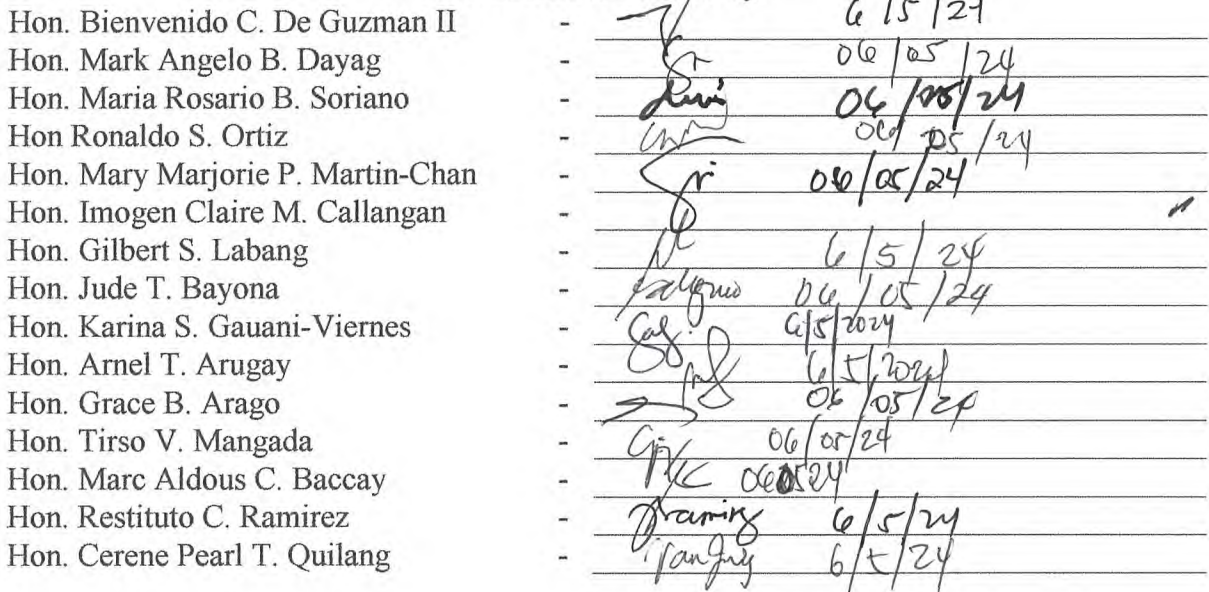 Hon. Bienvenido C. De Guzman II - 6/5/24
Hon. Mark Angelo B. Dayag - 06/05/24
Hon. Maria Rosario B. Soriano - 06/05/24
Hon Ronaldo S. Ortiz - 06/05/24
Hon. Mary Marjorie P. Martin-Chan - 06/05/24
Hon. Imogen Claire M. Callangan -
Hon. Gilbert S. Labang - 6/5/24
Hon. Jude T. Bayona - 06/05/24
Hon. Karina S. Gauani-Viernes - 6/5/2024
Hon. Arnel T. Arugay - 6/5/2024
Hon. Grace B. Arago - 06/05/24
Hon. Tirso V. Mangada - 06/05/24
Hon. Marc Aldous C. Baccay - 060524
Hon. Restituto C. Ramirez - 6/5/24
Hon. Cerene Pearl T. Quilang - 6/5/24